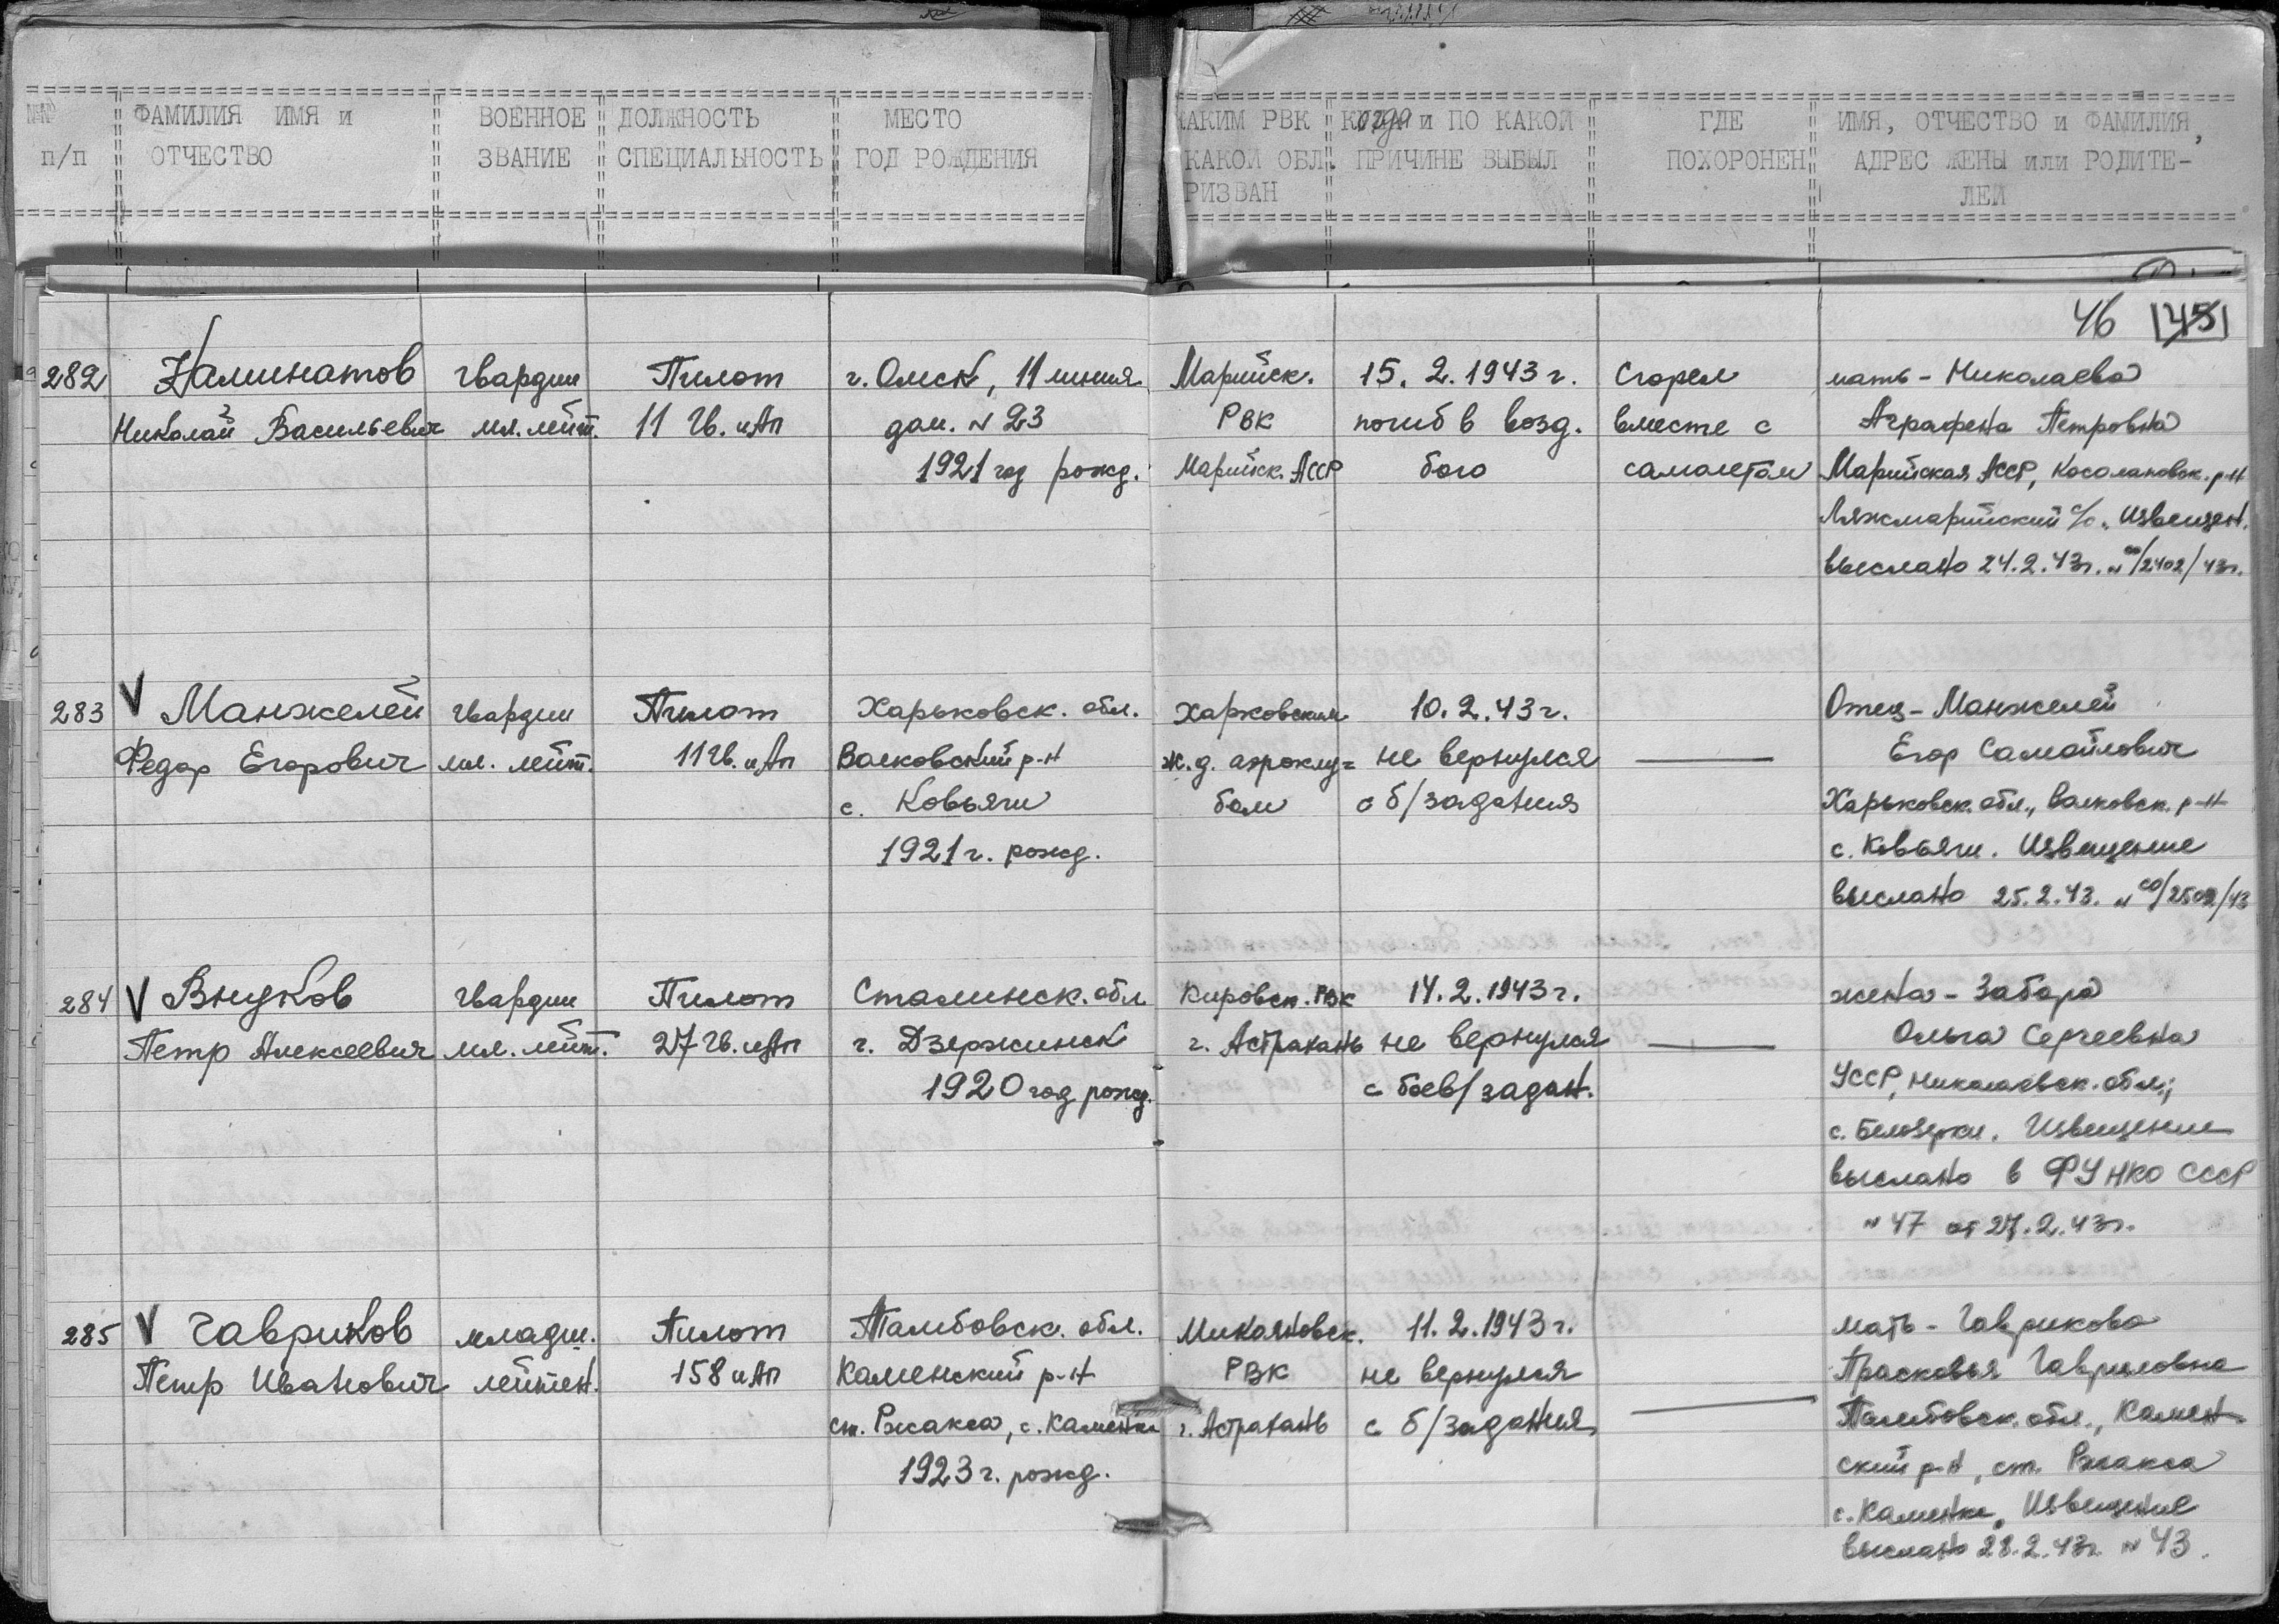 №№ п/п
ФАМИЛИЯ ИМЯ и ОТЧЕСТВО
ВОЕННОЕ ЗВАНИЕ
ДОЛЖНОСТЬ СПЕЦИАЛЬНОСТЬ
МЕСТО ГОД РОЖДЕНИЯ
КАКИМ РВК КАКОЙ ОБЛ. РИЗВАН
Когда и ПО КАКОЙ ПРИЧИНЕ ВЫБЫЛ
ГДЕ ПОХОРОНЕН
ИМЯ, ОТЧЕСТВО и ФАМИЛИЯ, АДРЕС ЖЕНЫ или РОДИТЕ-
ЛЕЙ
46 45
282
Калинатов
Николай Васильевич
гвардии
мл. лейт.
Пилот
11 Гв. иАп
г. Омск, 11 линия
дом. N 23
1921 год рожд.
Марийск.
РВК
Марийск. АССР
15. 2. 1943 г.
погиб в возд.
бою
Сгорел
вместе с
самолетом
мать - Николаева
Аграфена Петровна
Марийская АССР, Косолаповск. р-н
Ляжмарийский с/с. Извещен.
выслано 24.2.43г. N со/2402/43г.
283
V Манжелей
Федор Егорович
гвардии
мл. лейт.
Пилот
11 Гв. иАп
Харьковск. обл.
Валковский р-н
с. Ковяги
1921 г. рожд.
Харковским
ж.д. аэроклу=
бом
10. 2. 43 г.
не вернулся
с б/задания
Отец - Манжелей
Егор Самойлович
Харьковск. обл., Валковск. р-н
с. Ковьяги. Извещение
выслано 25.2.43. N со/2502/43
284
V Внуков
Петр Алексеевич
гвардии
мл. лейт.
Пилот
27 Гв. иАп
Сталинск. обл
г. Дзержинск
1920 год рожд.
Кировск. РВК
г. Астрахань
14. 2. 1943 г.
не вернулся
с боев/задан.
жена - Забара
Ольга Сергеевна
УССР, Николаевск. обл.,
с. Белозерки. Извещение
выслано в ФУ НКО СССР
N 47 от 27.2.43г.
285
V Гавриков
Петр Иванович
младш.
лейтен.
Пилот
158 иАп
Тамбовск. обл.
Каменский р-н
ст. Ржакса, с. Каменка
1923 г. рожд.
Микояновск.
РВК
г. Астрахань
11. 2. 1943 г.
не вернулся
с б/задания
мать - Гаврикова
Прасковья Гавриловна
Тамбовск. обл., Камен
ский р-н, ст. Ржакса
с. Каменка. Извещение
выслано 28.2.43г. N 43.